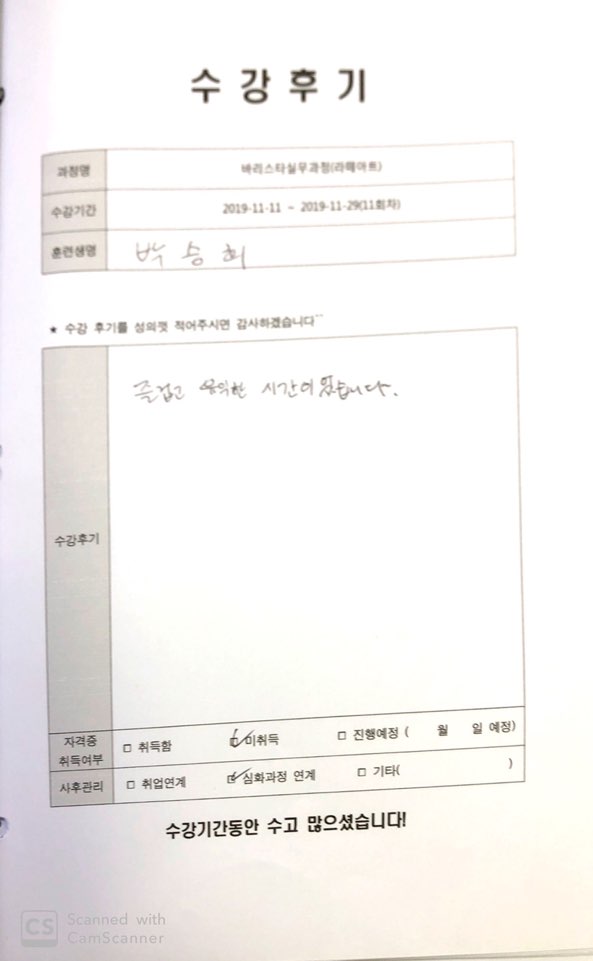 수강후기
과정명 바리스타실무과정(라떼아트)
수강기간 2019-11-11 ~ 2019-11-29(11회차)
훈련생명 박승희
★ 수강 후기를 성의껏 적어주시면 감사하겠습니다^^
수강후기 즐겁고 유익한 시간이었습니다.
자격증 취득여부 □ 취득함 ☑ 미취득 □ 진행예정 ( 월 일 예정)
사후관리 □ 취업연계 ☑ 심화과정 연계 □ 기타( )
수강기간동안 수고 많으셨습니다!
CS Scanned with
CamScanner